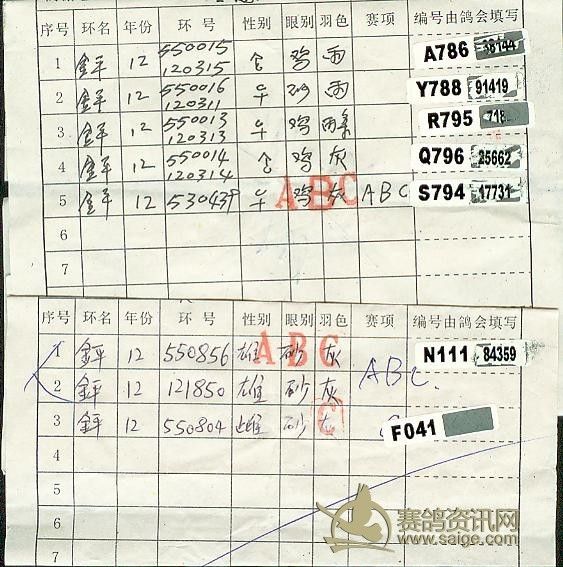 序号 环名 年份 环号 性别 眼别 羽色 赛项 编号由鸽会填写
1 12 550015 鸡 雨 A786 38144
120315
2 12 550016 砂 雨 Y788 91419
120311
3 12 550013 鸡 R795 718
120313
4 12 550014 鸡 灰 Q796 25662
120314
5 12 530439 鸡 灰 ABC ABC S794 17731
6
7
序号 环名 年份 环号 性别 眼别 羽色 赛项 编号由鸽会填写
1 12 550856 雄 砂 灰 ABC N111 84359
2 12 121850 雄 砂 灰 ABC.
3 12 550804 雌 砂 灰 C F041
4
5
6
7
赛鸽资讯网
www.saige.com